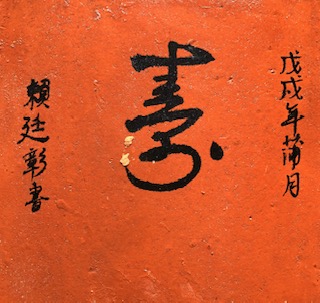 戊戌年蒲月
壽
賴廷彰書